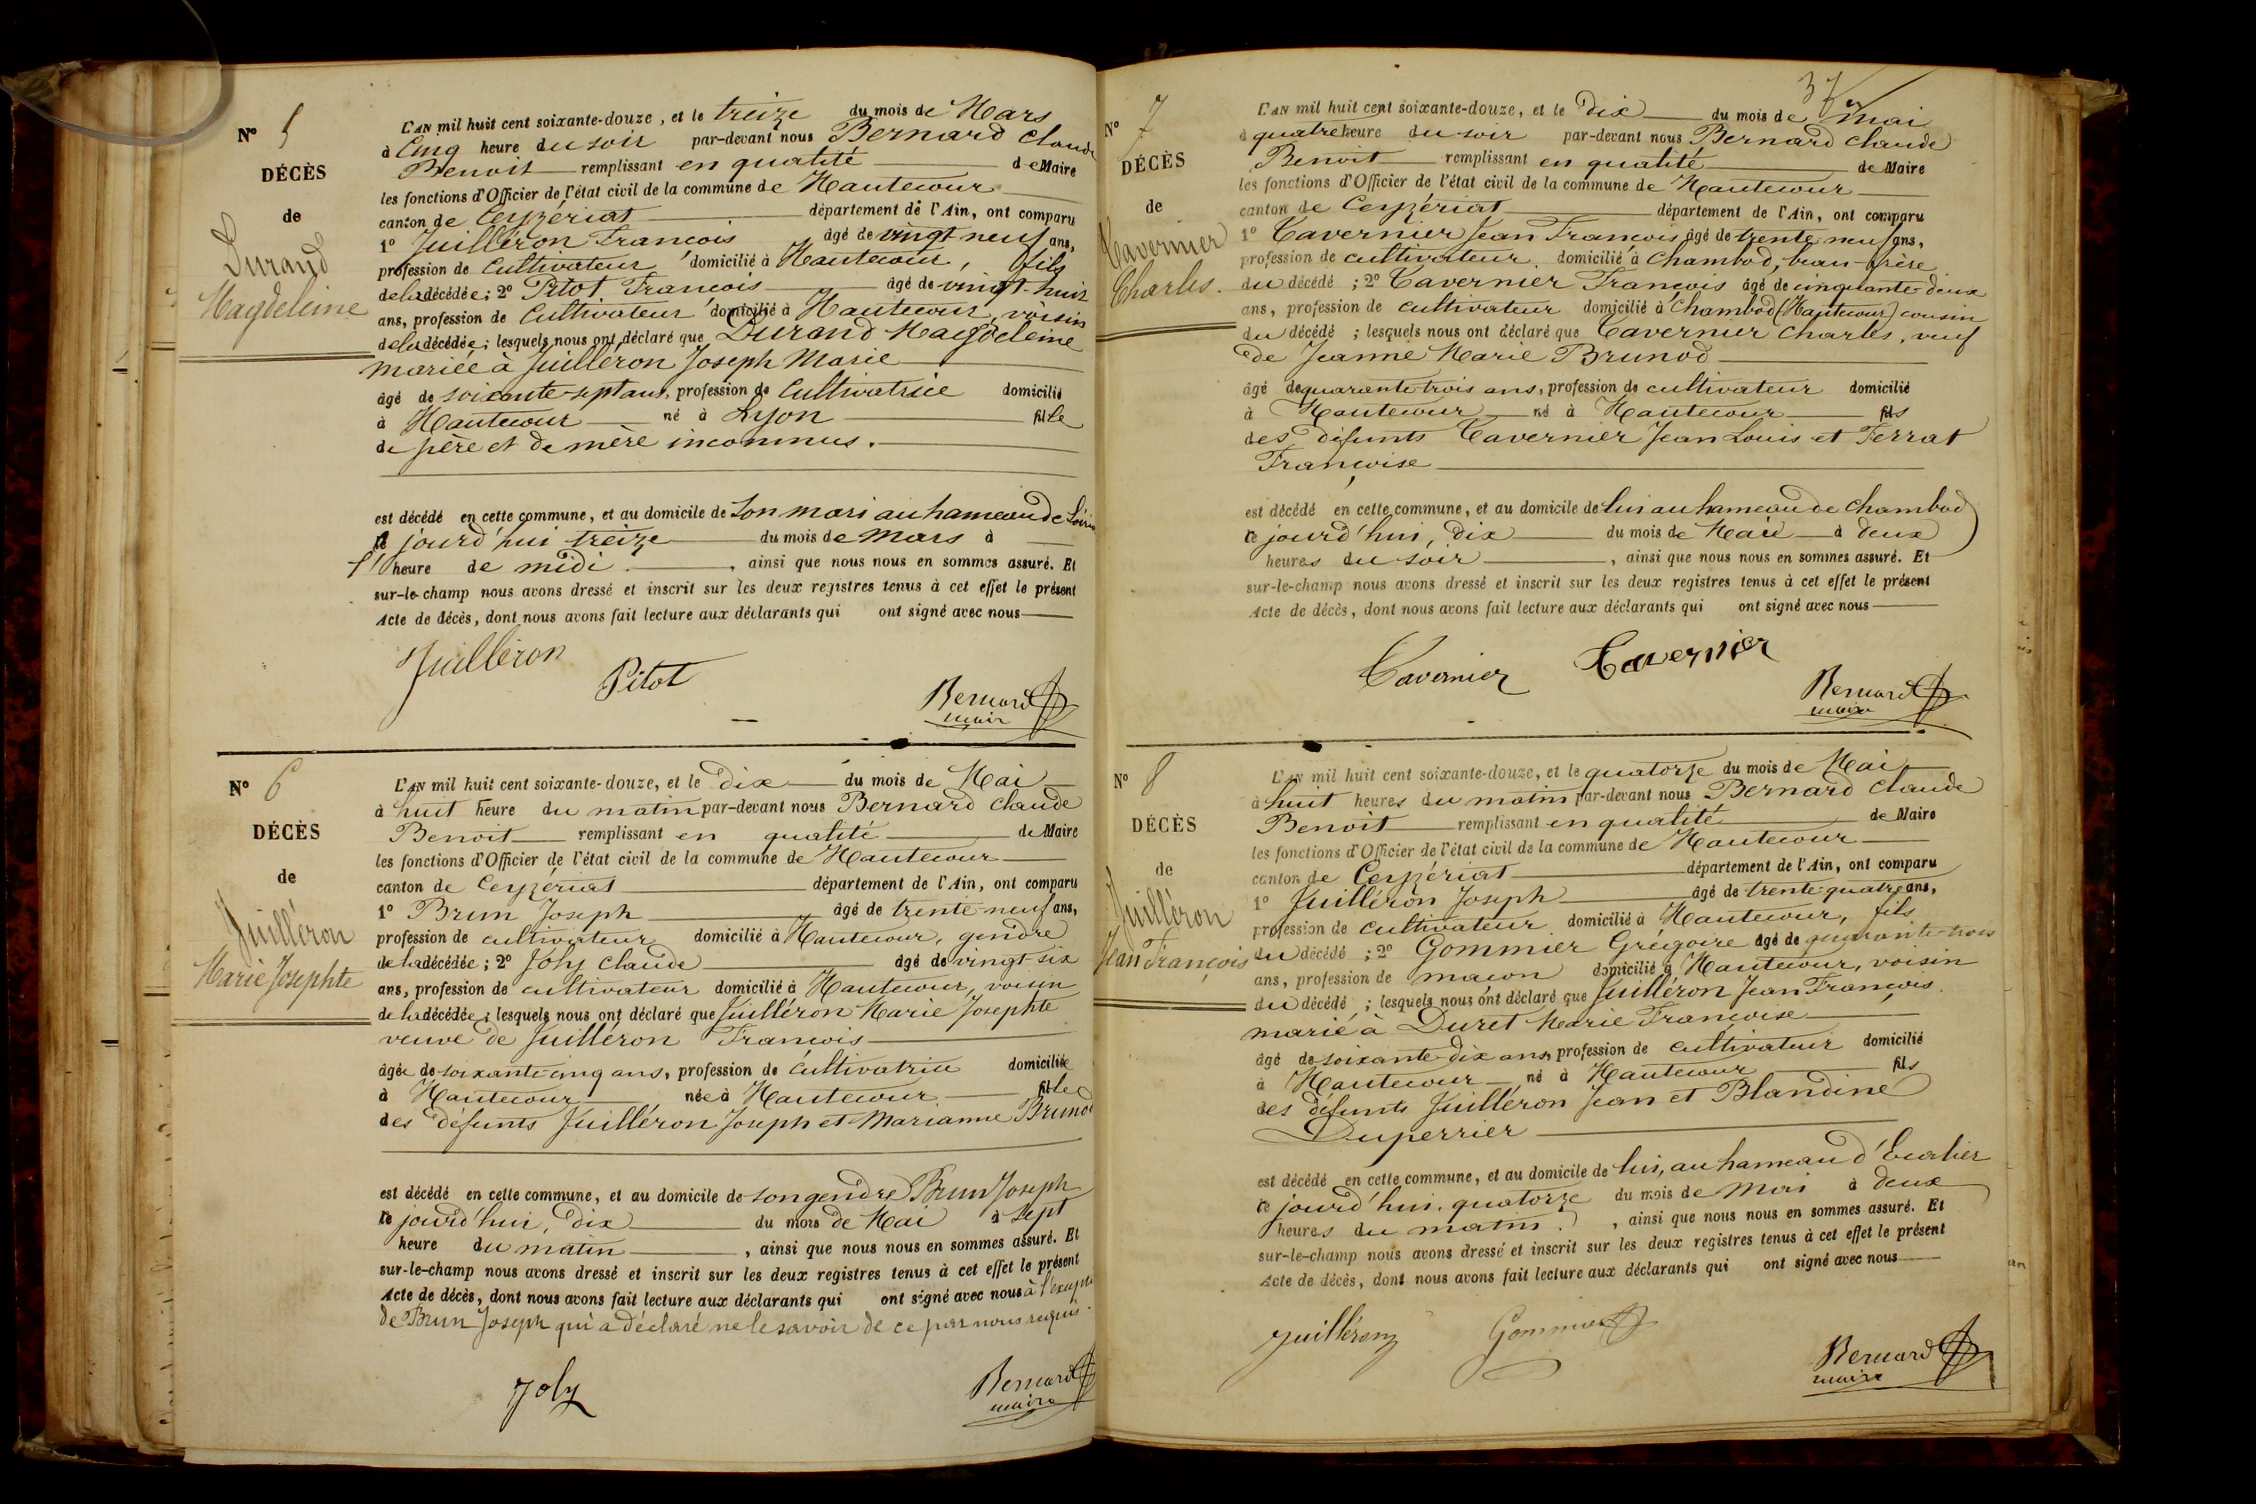 Nº 5
DÉCÈS
de
Durand
Magdeleine
L'AN mil huit cent soixante-douze, et le treize du mois de Mars
à Cinq heure du soir par-devant nous Bernard Claude
Benoit remplissant en qualité de Maire
les fonctions d'Officier de l'état civil de la commune de Hautecour
canton de Ceyzériat département de l'Ain, ont comparu
1º Juilléron François âgé de vingt neuf ans,
profession de Cultivateur domicilié à Hautecour, fils
de la décédée; 2º Pitot François âgé de vingt-huit
ans, profession de Cultivateur domicilié à Hautecour, voisin
de la décédée; lesquels nous ont déclaré que Durand Magdeleine
mariée à Juilléron Joseph Marie
âgé de soixante-sept ans, profession de Cultivatrice domicilié
à Hautecour né à Lyon fille
de père et de mère inconnus.
est décédé en cette commune, et au domicile de son mari au hameau de
le jourd'hui treize du mois de Mars à
heure de midi, ainsi que nous nous en sommes assuré. Et
sur-le-champ nous avons dressé et inscrit sur les deux registres tenus à cet effet le présent
Acte de décès, dont nous avons fait lecture aux déclarants qui ont signé avec nous
Juilléron
Pitot
Bernard
maire
Nº 6
DÉCÈS
de
Juilléron
Marie Josephte
L'AN mil huit cent soixante-douze, et le Dix du mois de Mai
à huit heure du matin par-devant nous Bernard Claude
Benoit remplissant en qualité de Maire
les fonctions d'Officier de l'état civil de la commune de Hautecour
canton de Ceyzériat département de l'Ain, ont comparu
1º Brun Joseph âgé de trente-neuf ans,
profession de cultivateur domicilié à Hautecour, gendre
de la décédée; 2º Joly Claude âgé de vingt-six
ans, profession de cultivateur domicilié à Hautecour, voisin
de la décédée; lesquels nous ont déclaré que Juilléron Marie Josephte
veuve de Juilléron François
âgée de soixante-cinq ans, profession de cultivatrice domiciliée
à Hautecour née à Hautecour fille
des défunts Juilléron Joseph et Marianne Brunod
est décédé en cette commune, et au domicile de son gendre Brun Joseph
le jourd'hui, Dix du mois de Mai à sept
heure du matin, ainsi que nous nous en sommes assuré. Et
sur-le-champ nous avons dressé et inscrit sur les deux registres tenus à cet effet le présent
Acte de décès, dont nous avons fait lecture aux déclarants qui ont signé avec nous à l'except
de Brun Joseph qui a déclaré ne le savoir de ce par nous requis.
Joly
Bernard
maire
37
Nº 7
DÉCÈS
de
Tavernier
Charles.
L'AN mil huit cent soixante-douze, et le Dix du mois de Mai
à quatre heure du soir par-devant nous Bernard Claude
Benoit remplissant en qualité de Maire
les fonctions d'Officier de l'état civil de la commune de Hautecour
canton de Ceyzériat département de l'Ain, ont comparu
1º Tavernier Jean François âgé de trente neuf ans,
profession de cultivateur domicilié à Chambod, beau-frère
du décédé; 2º Tavernier François âgé de cinquante-deux
ans, profession de cultivateur domicilié à Chambod (Hautecour) cousin
du décédé; lesquels nous ont déclaré que Tavernier Charles, veuf
de Jeanne Marie Brunod
âgé de quarante-trois ans, profession de cultivateur domicilié
à Hautecour né à Hautecour fils
des défunts Tavernier Jean Louis et Ferrat
Françoise
est décédé en cette commune, et au domicile de lui au hameau de Chambod
le jourd'hui, Dix du mois de Mai à deux
heures du soir, ainsi que nous nous en sommes assuré. Et
sur-le-champ nous avons dressé et inscrit sur les deux registres tenus à cet effet le présent
Acte de décès, dont nous avons fait lecture aux déclarants qui ont signé avec nous
Tavernier
Tavernier
Bernard
maire
Nº 8
DÉCÈS
de
Juilléron
Jean François
L'AN mil huit cent soixante-douze, et le quatorze du mois de Mai
à huit heures du matin par-devant nous Bernard Claude
Benoit remplissant en qualité de Maire
les fonctions d'Officier de l'état civil de la commune de Hautecour
canton de Ceyzériat département de l'Ain, ont comparu
1º Juilléron Joseph âgé de trente-quatre ans,
profession de cultivateur domicilié à Hautecour, fils
du décédé; 2º Gommier Grégoire âgé de quarante-trois
ans, profession de maçon domicilié à Hautecour, voisin
du décédé; lesquels nous ont déclaré que Juilléron Jean François
marié à Duret Marie Françoise
âgé de soixante-dix ans, profession de cultivateur domicilié
à Hautecour né à Hautecour fils
des défunts Juilléron Jean et Blandine
Duperrier
est décédé en cette commune, et au domicile de lui, au hameau d'
le jourd'hui, quatorze du mois de Mai à deux
heures du matin, ainsi que nous nous en sommes assuré. Et
sur-le-champ nous avons dressé et inscrit sur les deux registres tenus à cet effet le présent
Acte de décès, dont nous avons fait lecture aux déclarants qui ont signé avec nous
Juilléron
Gommier
Bernard
maire